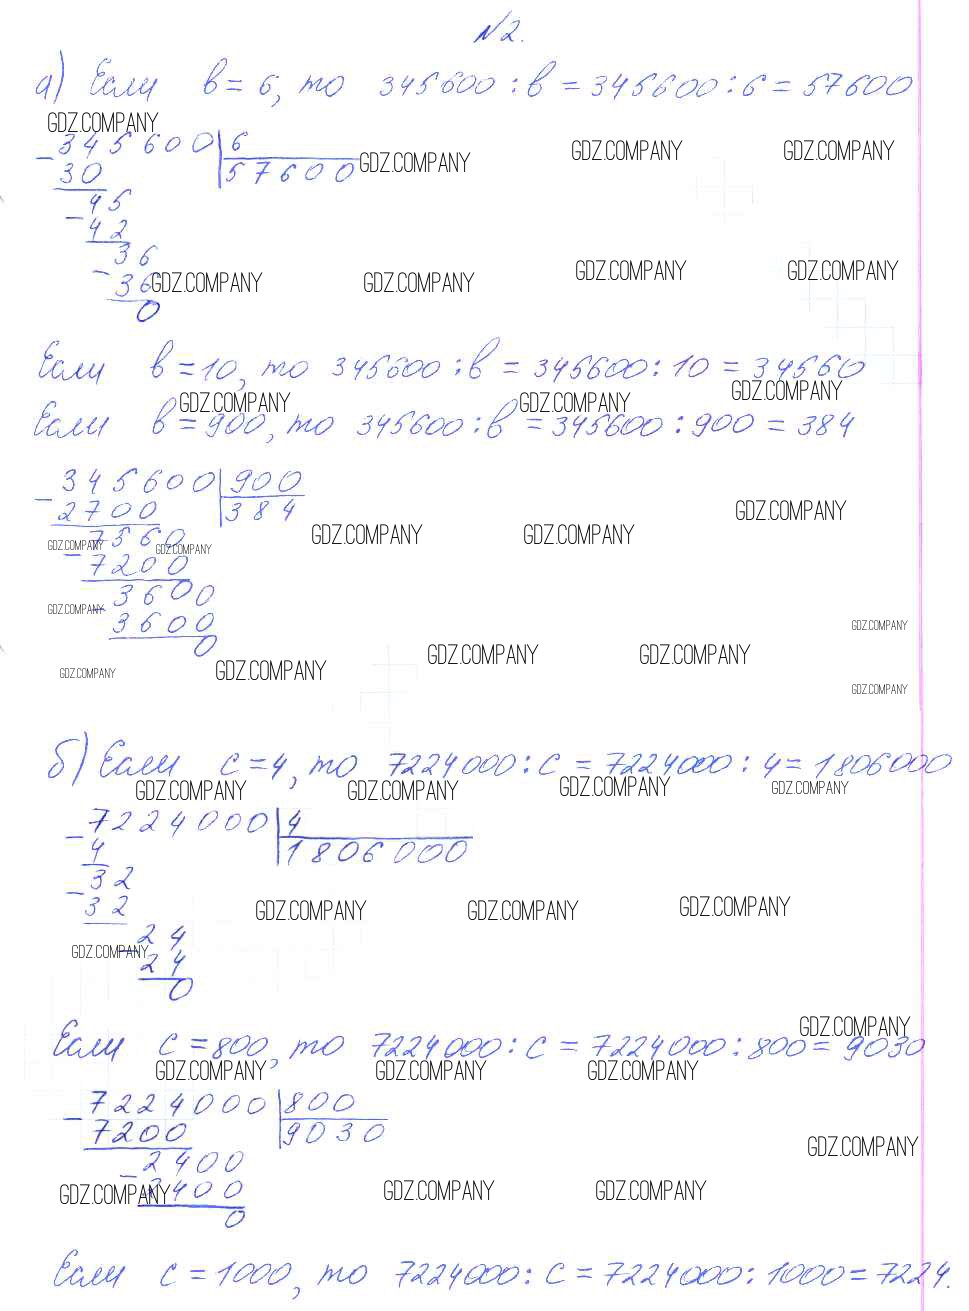 №2.
а) Если в = 6, то 345600 : в = 345600 : 6 = 57600
GDZ.COMPANY
- 345600 | 6
GDZ.COMPANY GDZ.COMPANY GDZ.COMPANY
30 57600
45
- 42
36
GDZ.COMPANY GDZ.COMPANY GDZ.COMPANY GDZ.COMPANY
- 36
0
Если в = 10, то 345600 : в = 345600 : 10 = 34560
GDZ.COMPANY GDZ.COMPANY GDZ.COMPANY
Если в = 900, то 345600 : в = 345600 : 900 = 384
- 345600 | 900
2700 384
GDZ.COMPANY GDZ.COMPANY GDZ.COMPANY
GDZ.COMPANY GDZ.COMPANY
- 7560
7200
- 3600
GDZ.COMPANY
3600
GDZ.COMPANY
0
GDZ.COMPANY GDZ.COMPANY GDZ.COMPANY GDZ.COMPANY
GDZ.COMPANY
б) Если с = 4, то 7224000 : с = 7224000 : 4 = 1806000
GDZ.COMPANY GDZ.COMPANY GDZ.COMPANY GDZ.COMPANY
- 7224000 | 4
4 1806000
- 32
32
GDZ.COMPANY GDZ.COMPANY GDZ.COMPANY
- 24
GDZ.COMPANY
24
0
GDZ.COMPANY
Если с = 800, то 7224000 : с = 7224000 : 800 = 9030
GDZ.COMPANY GDZ.COMPANY GDZ.COMPANY
- 7224000 | 800
7200 9030
GDZ.COMPANY
- 2400
2400
GDZ.COMPANY GDZ.COMPANY GDZ.COMPANY
0
Если с = 1000, то 7224000 : с = 7224000 : 1000 = 7224.